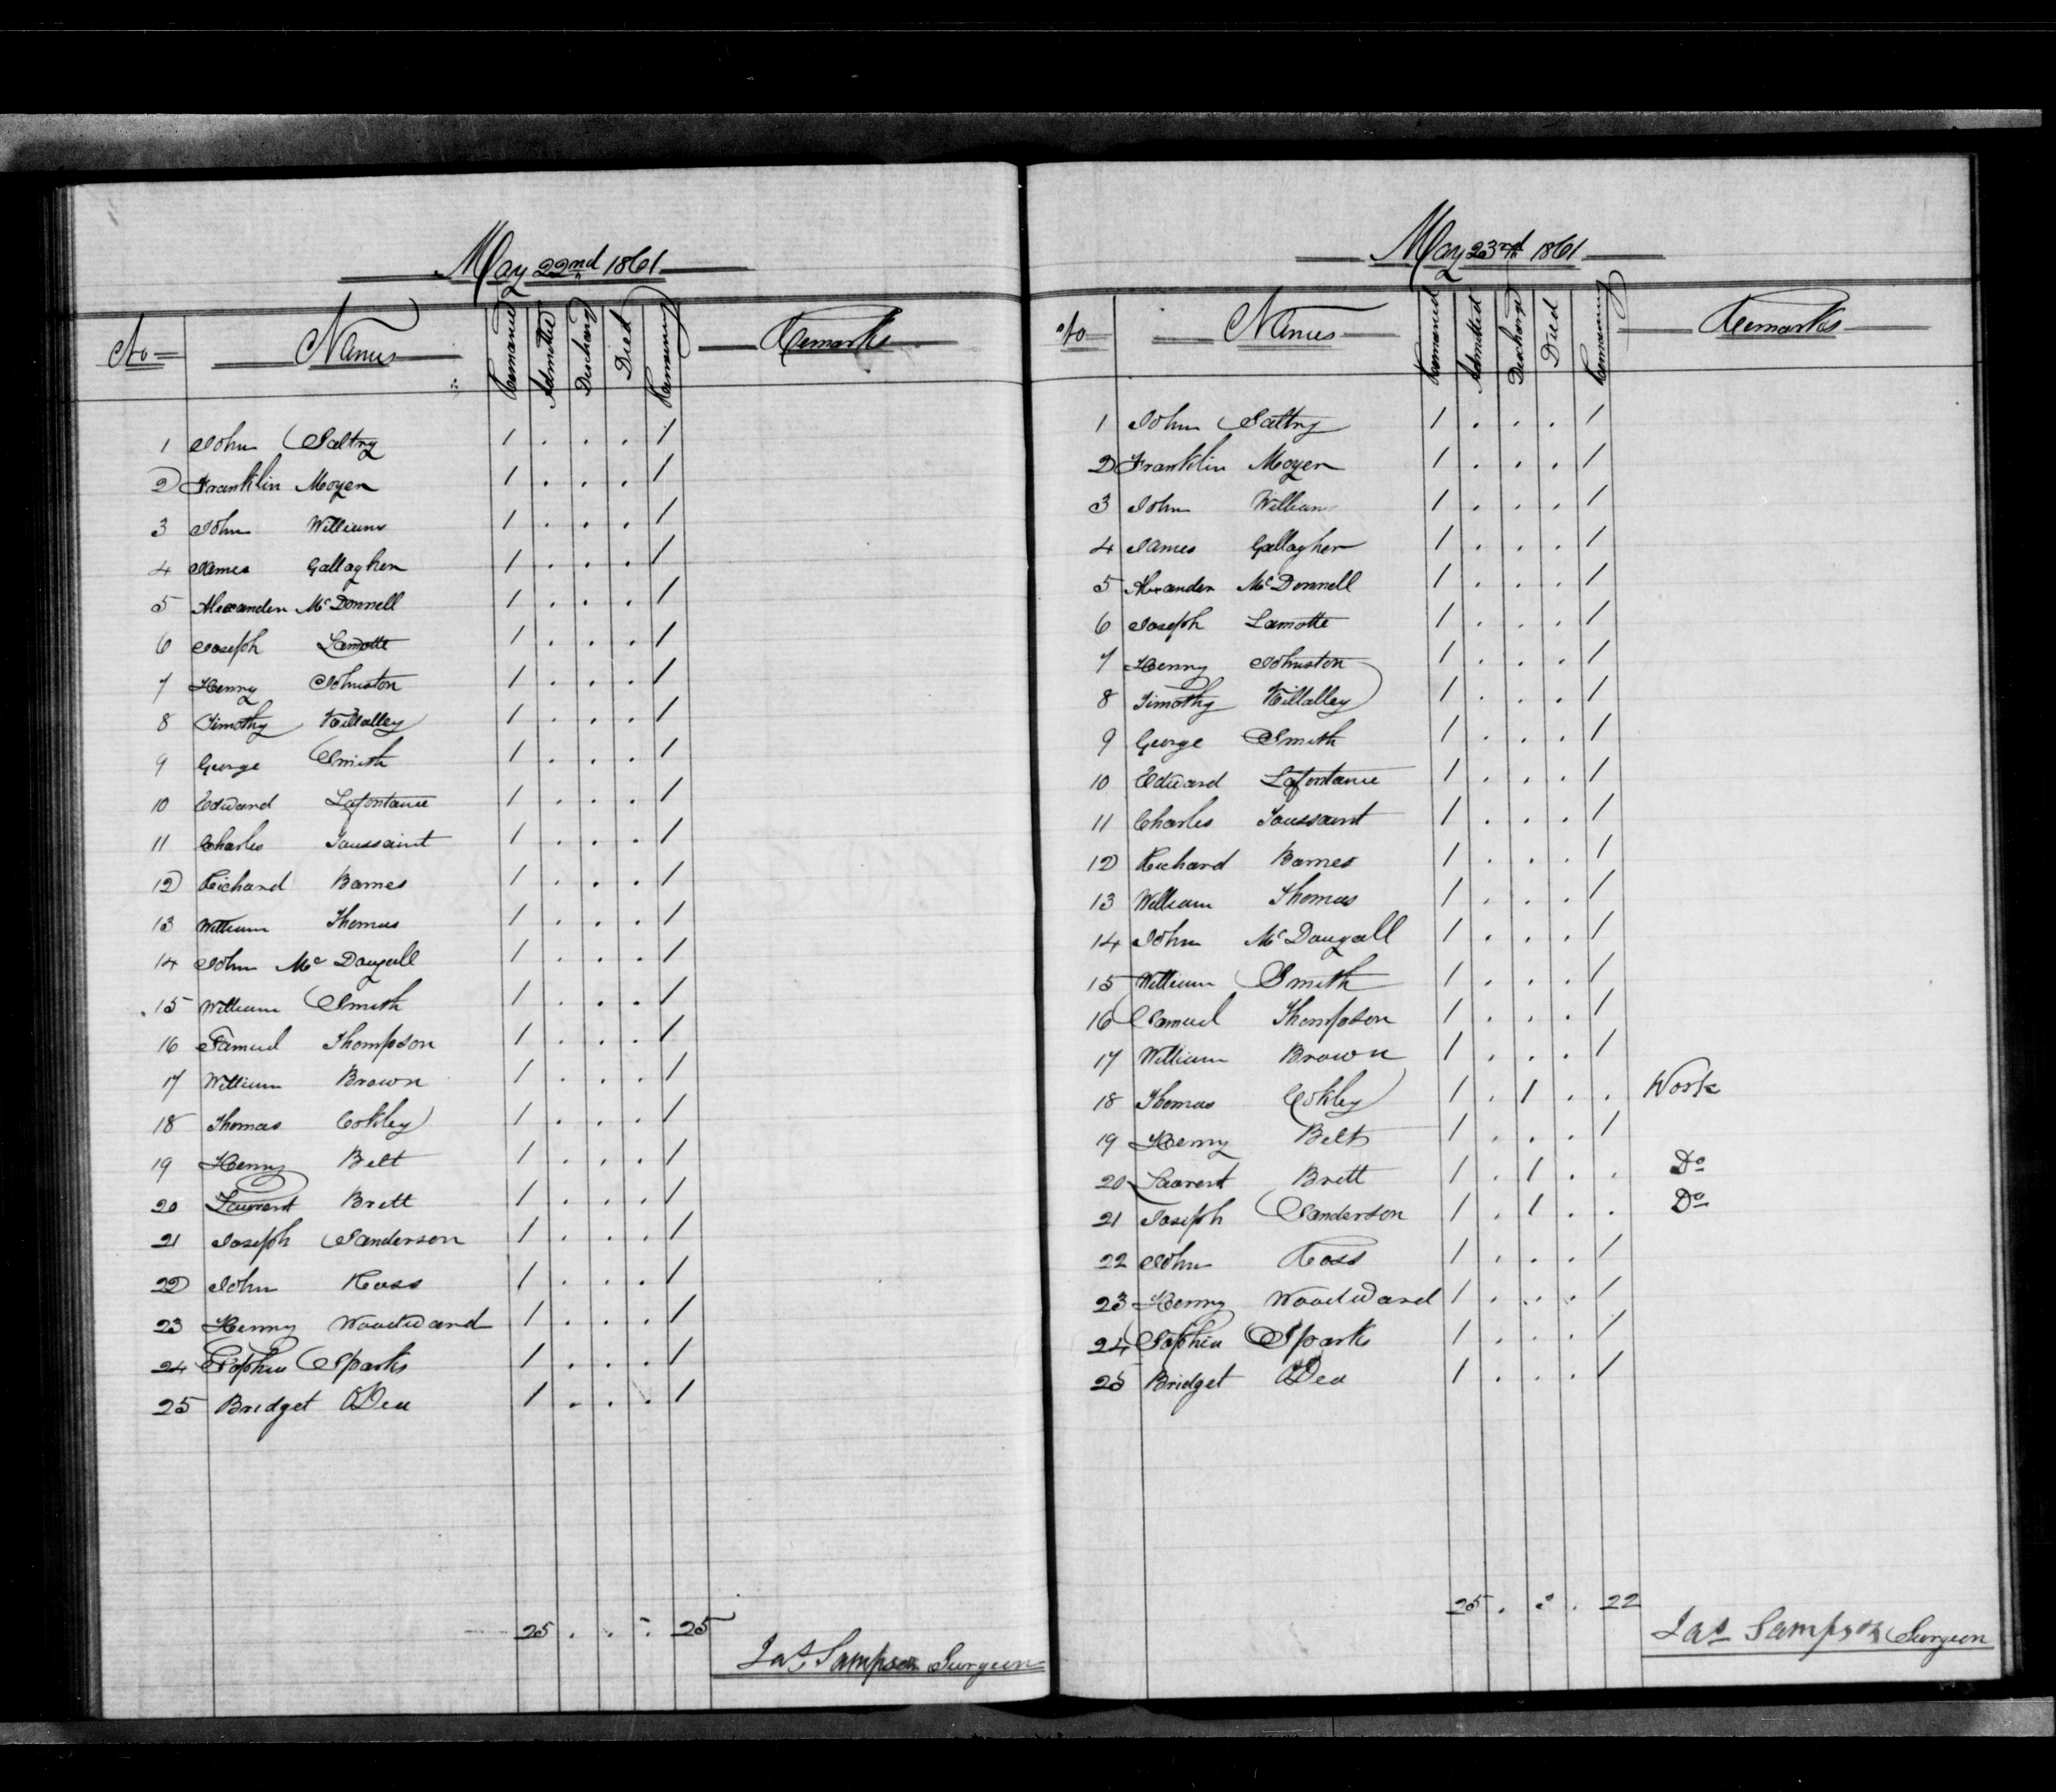 May 22nd 1861
No Names Remained Admitted Discharg'd Died Remaining Remarks
1 John Saltry 1 . . . 1
2 Franklin Moyer 1 . . . 1
3 John Williams 1 . . . 1
4 James Gallagher 1 . . . 1
5 Alexander McDonnell 1 . . . 1
6 Joseph Lamotte 1 . . . 1
7 Henry Johnston 1 . . . 1
8 Timothy Killalley 1 . . . 1
9 George Smith 1 . . . 1
10 Edward Lafontaine 1 . . . 1
11 Charles Toussaint 1 . . . 1
12 Richard Barnes 1 . . . 1
13 William Thomas 1 . . . 1
14 John McDougall 1 . . . 1
15 William Smith 1 . . . 1
16 Samuel Thompson 1 . . . 1
17 William Brown 1 . . . 1
18 Thomas Cokley 1 . . . 1
19 Henry Belt 1 . . . 1
20 Laurent Brett 1 . . . 1
21 Joseph Sanderson 1 . . . 1
22 John Ross 1 . . . 1
23 Henry Woodward 1 . . . 1
24 Sophia Sparks 1 . . . 1
25 Bridget ODea 1 . . . 1
25 . . . 25
Jas Sampson Surgeon
May 23rd 1861
No Names Remained Admitted Discharg'd Died Remaining Remarks
1 John Saltry 1 . . . 1
2 Franklin Moyer 1 . . . 1
3 John Williams 1 . . . 1
4 James Gallagher 1 . . . 1
5 Alexander McDonnell 1 . . . 1
6 Joseph Lamotte 1 . . . 1
7 Henry Johnston 1 . . . 1
8 Timothy Killalley 1 . . . 1
9 George Smith 1 . . . 1
10 Edward Lafontaine 1 . . . 1
11 Charles Toussaint 1 . . . 1
12 Richard Barnes 1 . . . 1
13 William Thomas 1 . . . 1
14 John McDougall 1 . . . 1
15 William Smith 1 . . . 1
16 Samuel Thompson 1 . . . 1
17 William Brown 1 . . . 1
18 Thomas Cokley 1 . 1 . . Work
19 Henry Belt 1 . . . 1
20 Laurent Brett 1 . 1 . . Do
21 Joseph Sanderson 1 . 1 . . Do
22 John Ross 1 . . . 1
23 Henry Woodward 1 . . . 1
24 Sophia Sparks 1 . . . 1
25 Bridget ODea 1 . . . 1
25 . 3 . 22
Jas Sampson Surgeon